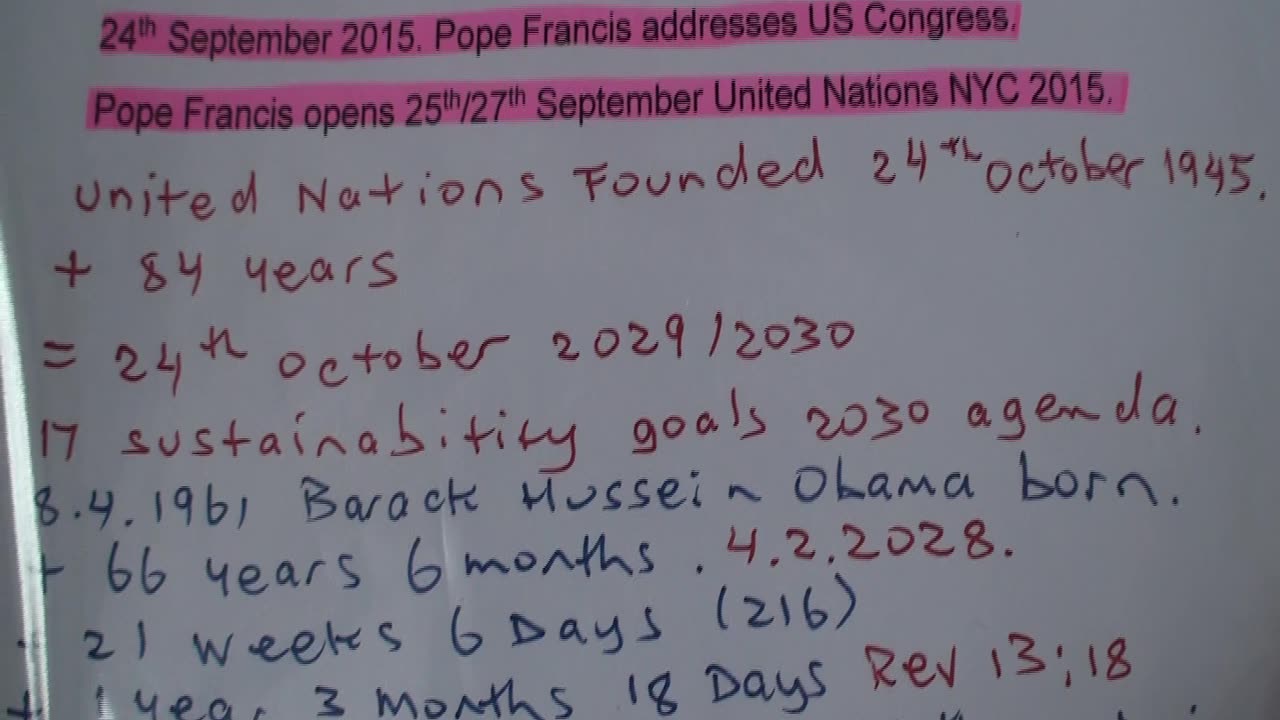 24th September 2015. Pope Francis addresses US Congress.
Pope Francis opens 25th/27th September United Nations NYC 2015.
United Nations Founded 24th October 1945.
+ 84 years
= 24th October 2029/2030
17 sustainabitity goals 2030 agenda.
8.4.1961 Barack Hussein Obama born.
+ 66 years 6 months. 4.2.2028.
+ 21 weeks 6 Days (216)
+ 1 year 3 months 18 Days Rev 13:18